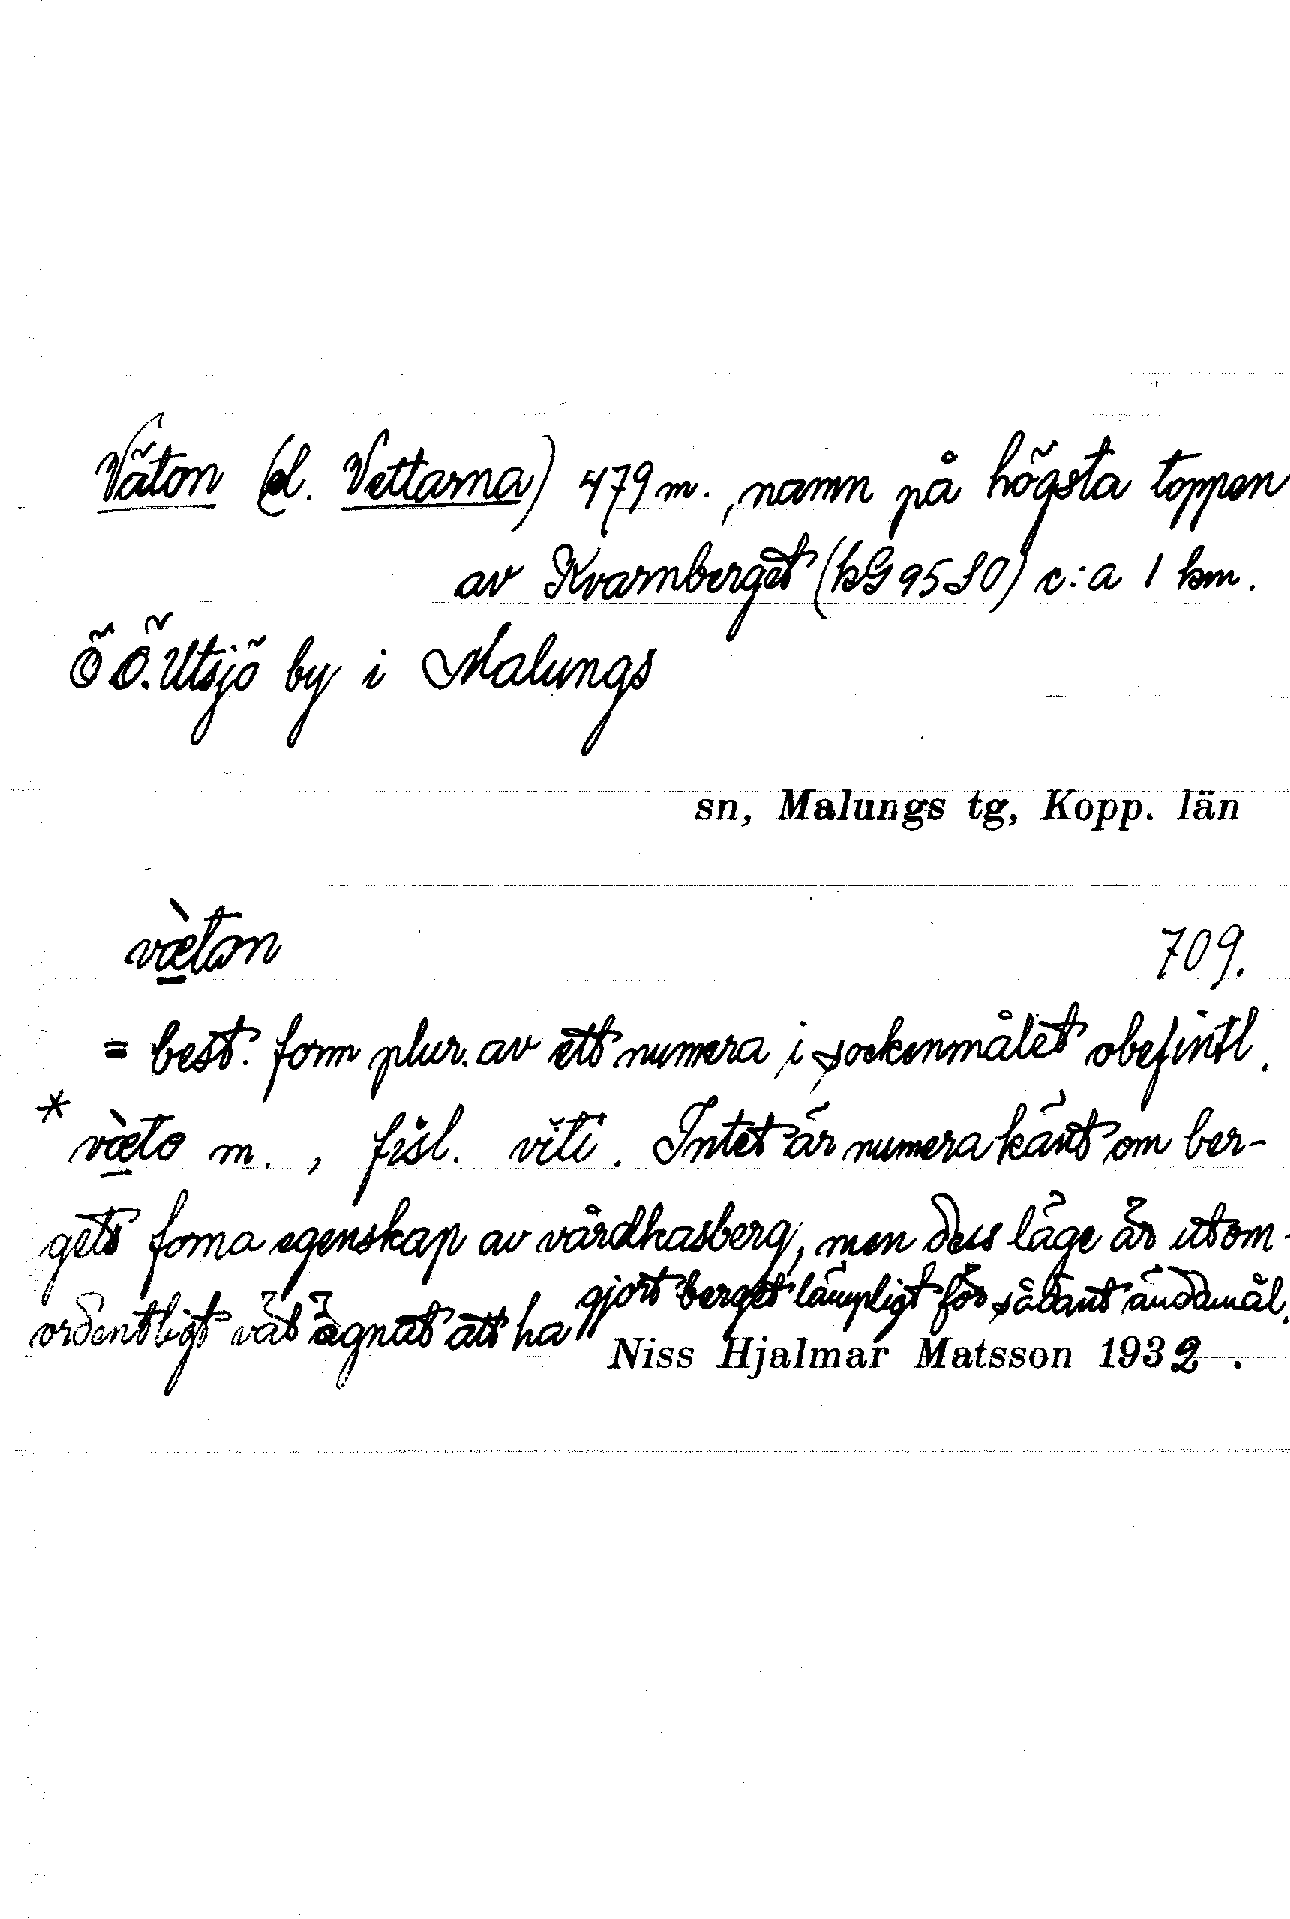 Väton (el. Vettarna) 479 m., namn på högsta toppen
av Kvarnberget (kG 95 S0) c:a 1 km.
Ö Ö. Utsjö by i Malungs
sn, Malungs tg, Kopp. län
væ̀tan 709.
= best. form plur. av ett numera i sockenmålet obefintl.
* væ̀to m., fisl. viti. Intet är numera känt om ber-
gets forna egenskap av vårdkasberg, men dess läge är utom-
ordentligt väl ägnat att ha gjort berget lämpligt för sådant ändamål.
Niss Hjalmar Matsson 1932.